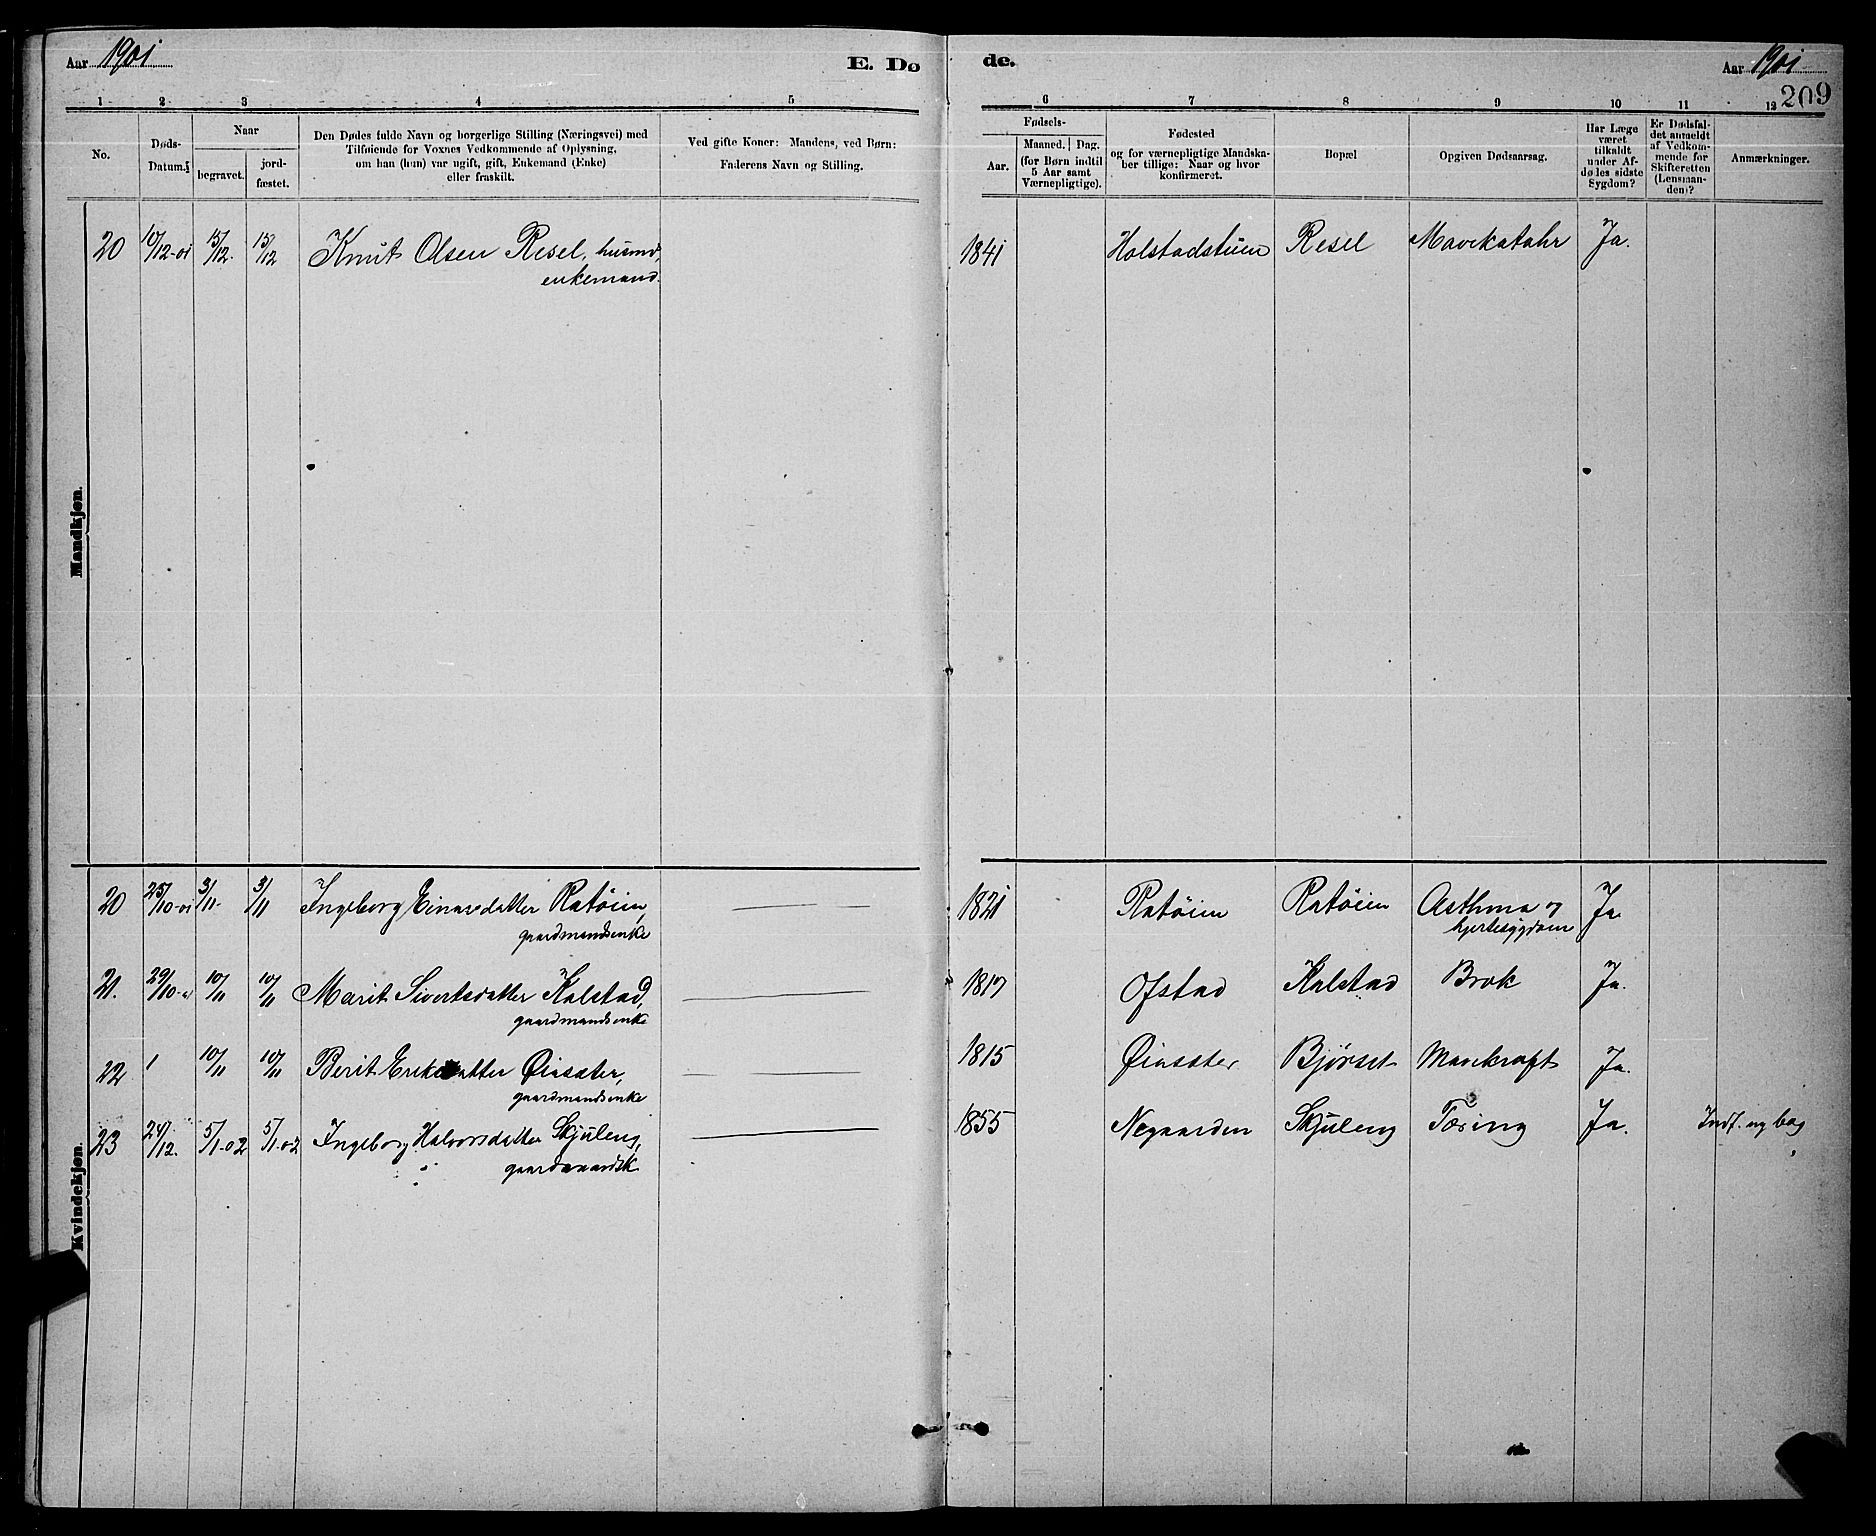 Aar 1901 E. Dø de. Aar 1901
209
1 2 3 4 5 6 7 8 9 10 11 12
No.
Døds-
Datum.
Naar
begravet.
jord-
fæstet.
Den Dødes fulde Navn og borgerlige Stilling (Næringsvei) med
Tilføiende for Voxnes Vedkommende af Oplysning,
om han (hun) var ugift, gift, Enkemand (Enke)
eller fraskilt.
Ved gifte Koner: Mandens, ved Børn:
Faderens Navn og Stilling.
Fødsels-
Aar.
Maaned. Dag.
(for Børn indtil
5 Aar samt
Værnepligtige).
Fødested
og for værnepligtige Mandska-
ber tillige: Naar og hvor
konfirmeret.
Bopæl
Opgiven Dødsaarsag.
Har Læge
været
tilkaldt
under Af-
dødes sidste
Sygdom?
Er Dødsfal-
det anmeldt
af Vedkom-
mende for
Skifteretten
(Lensman-
den)?
Anmærkninger.
Mandkjøn.
20 10/12-01 15/12. 15/12 Knut Olsen Resel, husmd, 1841 Holstadstuen Resel Mavekatahr Ja.
enkemand.
Kvindekjøn.
20 25/10-01 3/11. 3/11 Ingeborg Einarsdatter Ratöien, 1821 Ratöien Ratöien Asthma og Ja
gaardmandsenke hjertesygdom
21. 29/10-01 10/11 10/11 Marit Sivertsdatter Kalstad, 1817 Ofstad Kalstad Brok Ja.
gaardmandsenke
22 1 10/11 10/11 Berit Eriksdatter Øiasæter, 1815 Øiasæter Bjørset Mavekræft Ja.
gaardmandsenke
23 24/12. 5/1-02 5/1-02 Ingeborg Halvorsdatter Skjuleng, 1855 Negaarden Skjuleng Tæring Ja. Indf. ny bog
gaardmandsk.